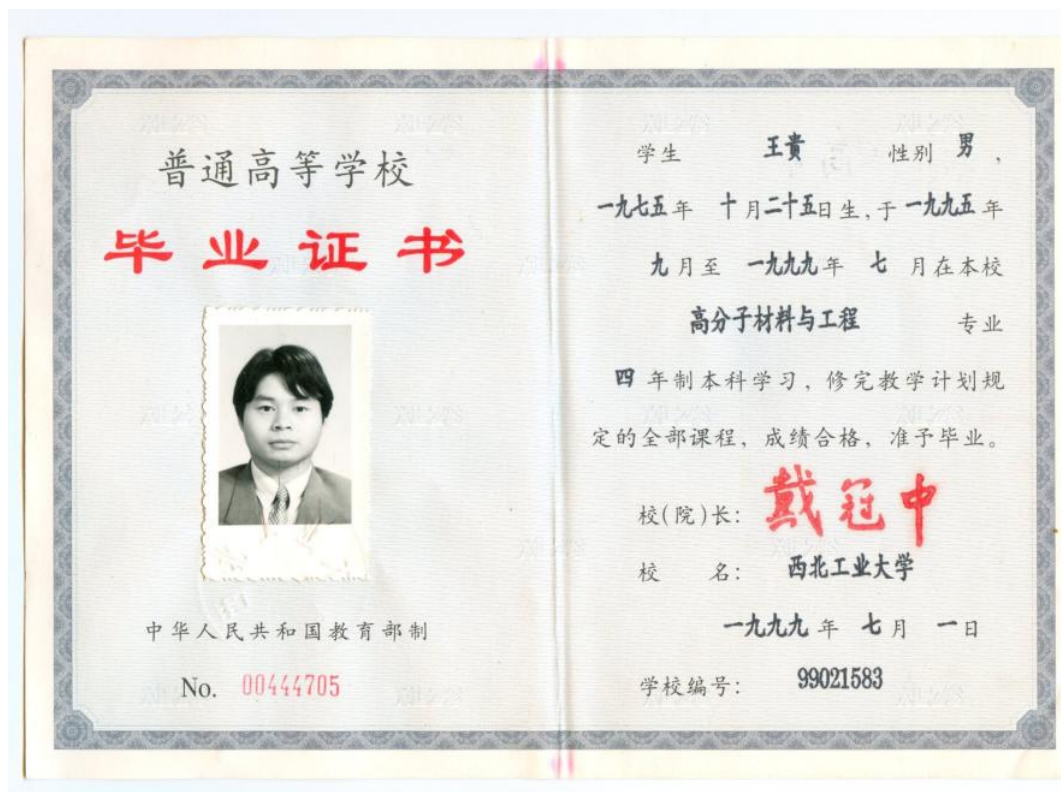 普通高等学校
毕业证书
中华人民共和国教育部制
No. 00444705
学生 王贵 性别 男，
一九七五年 十月二十五日生，于一九九五年
九月至 一九九九年 七 月在本校
高分子材料与工程 专业
四 年制本科学习，修完教学计划规
定的全部课程，成绩合格，准予毕业。
校(院)长： 戴冠中
校 名： 西北工业大学
一九九九 年 七月 一日
学校编号： 99021583